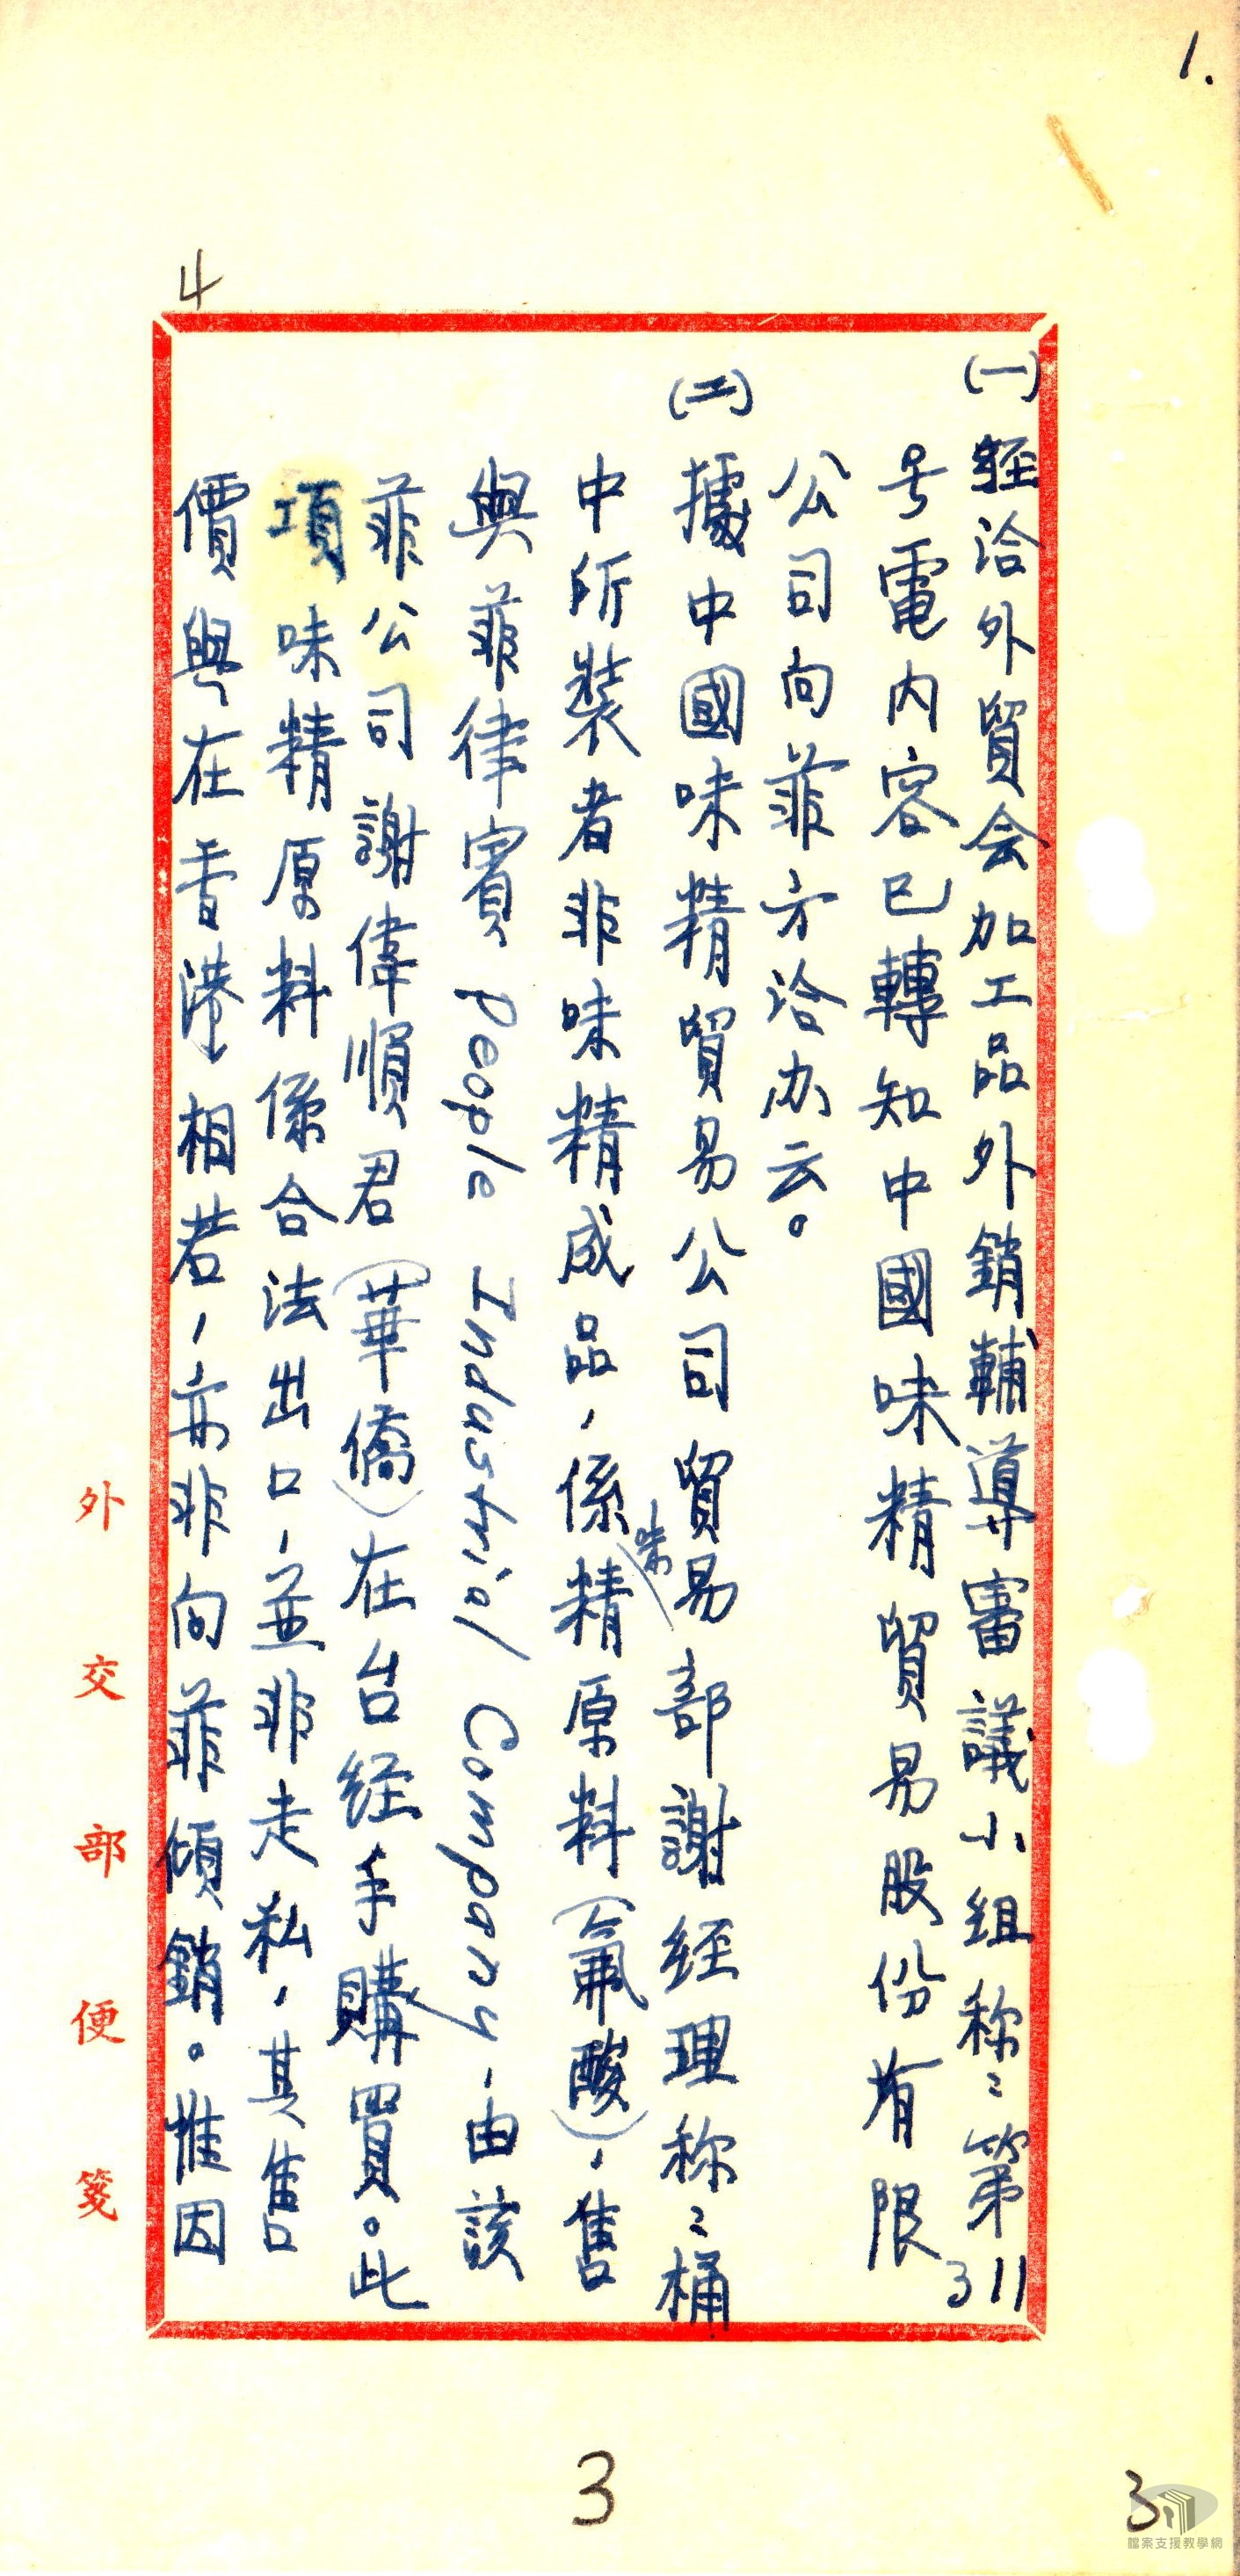 1.
4
(一)経洽外貿会加工品外銷輔導審議小组称:第311
号電内容已轉知中國味精貿易股份有限
公司向菲方洽办云。
(二)據中國味精貿易公司貿易部謝経理称:桶
中所裝者非味精成品,係味精原料(氟酸),售
與菲律賓 People Industrial Company,由該
菲公司謝偉順君(華僑)在台経手購買。此
項味精原料係合法出口,並非走私,其售
價與在香港相若,亦非向菲傾銷。惟因
外交部便箋
3
3
檔案支援教學網